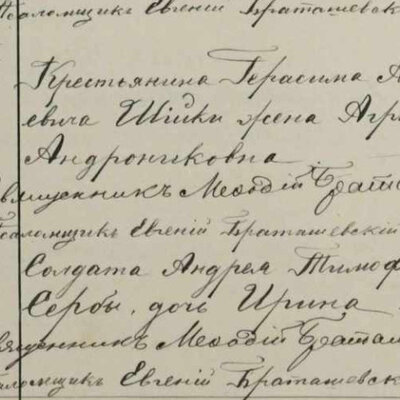 Псаломщикъ Евгеній Браташевск
Крестьянина Герасима
евича Шійки жена Агр
Андрониковна
вященникъ Меѳодій Браташ
Псаломщикъ Евгеній Браташевскій
Солдата Андрея Тимоф
Сербы, дочь Ирина
вященникъ Меѳодій Браташ
аломщикъ Евгеній Браташевск